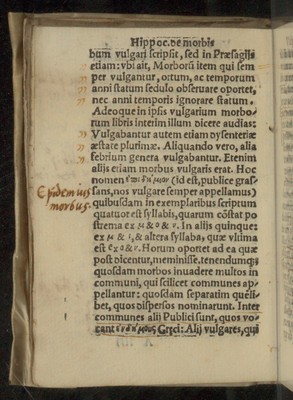 Hippoc. de morbis
bum vulgari scripsit, sed in Præsagijs
etiam: vbi ait, Morborū item qui sem
per vulgantur, ortum, ac temporum
anni statum sedulo obseruare oportet,
nec anni temporis ignorare statum.
Adeoque in ipsis vulgarium morbo⸗
rum libris interim illum dicere audias:
Vulgabantur autem etiam dysenteriæ
æstate plurimæ. Aliquando vero, alia
febrium genera vulgabantur. Etenim
alijs etiam morbus vulgaris erat. Hoc
nomen (id est, publice gras⸗
sans, nos vulgare semper appellamus)
Epidemius
morbus.
quibusdam in exemplaribus scriptum
quatuor est syllabis, quarum cōstat po
strema ex μ & ο & ν. In alijs quinque:
ex μ & ι, & altera syllaba, quæ vltima
est ex ο & ν. Horum oportet ad ea quæ
post dicentur, meminisse, tenendumq;
quosdam morbos inuadere multos in
communi, qui scilicet communes ap⸗
pellantur: quosdam separatim quēli⸗
bet, quos dispersos nominarunt. Inter
communes alij Publici sunt, quos vo⸗
cant Gręci: Alij vulgares, qui